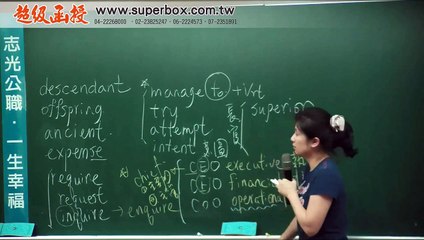 超級函授 www.superbox.com.tw
04-22268000 02-23825247 06-2224573 07-2351891
志光公職・一生幸福
descendant
offspring
ancient
expense
require
request
inquire → enquire
manage to + Vrt
try
attempt
intent
superior
CEO executive
financ
COO operational